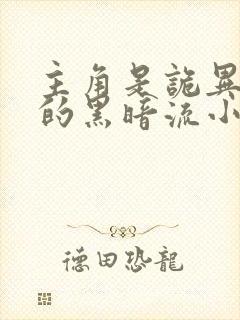 主角是詭異
的黑暗流小
德田恐龍